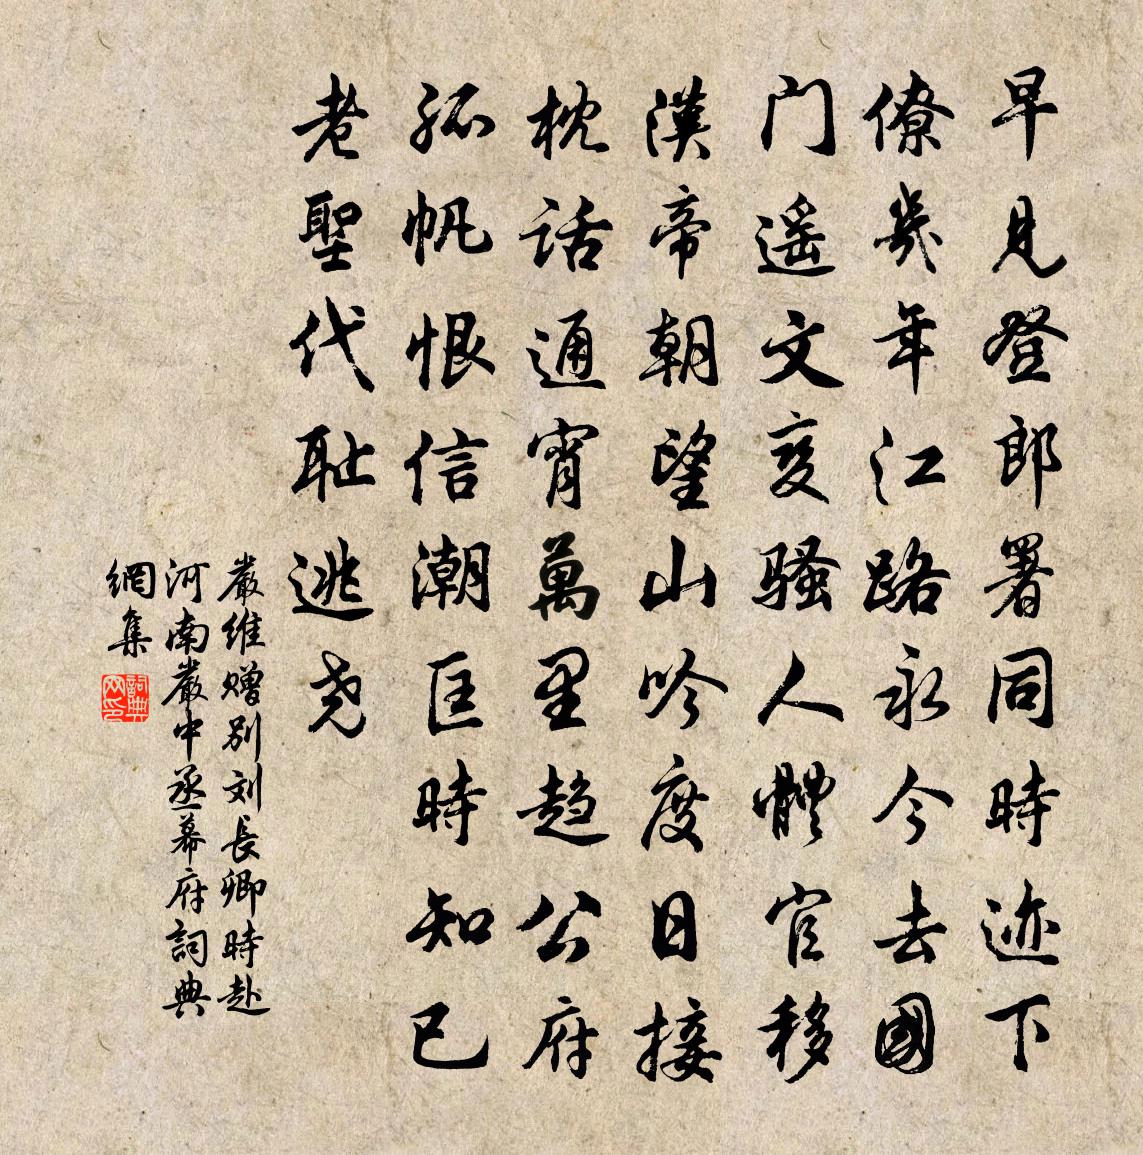 早見登郎署同時迹下
僚幾年江路永今去國
門遥文変騷人體官移
漢帝朝望山吟度日接
枕話通宵萬里趋公府
孤帆恨信潮匡時知已
老聖代耻逃尧
嚴維赠别刘長卿時赴
河南嚴中丞幕府詞典
網集
詞典网印